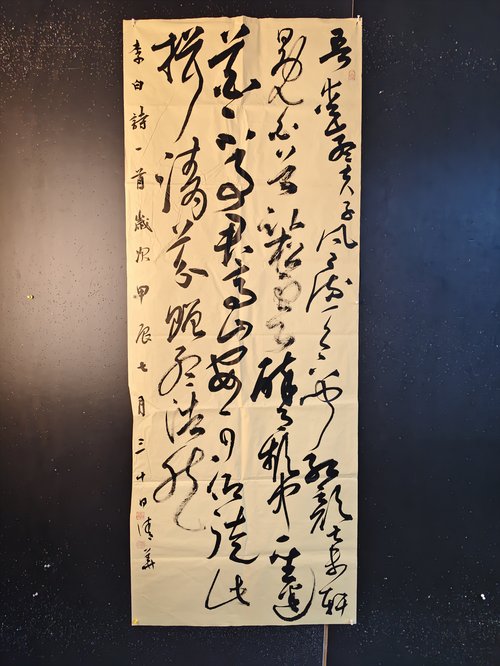 吾愛孟夫子風流天下聞紅顏棄軒
冕白首臥松雲醉月頻中聖迷
花不事君高山安可仰徒此
揖清芬贈孟浩然
李白詩一首歲次甲辰七月三十日清華